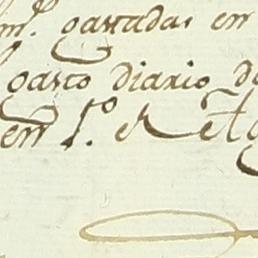 m.ᵉ gastadas en
gasto diario d
en 1.º d